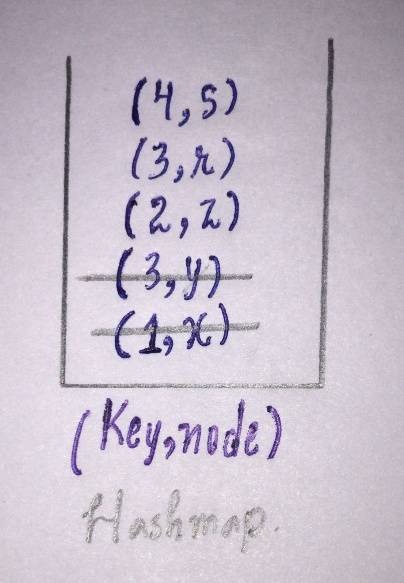 (4,s)
(3,r)
(2,z)
(3,y)
(1,x)
(Key,node)
Hashmap.